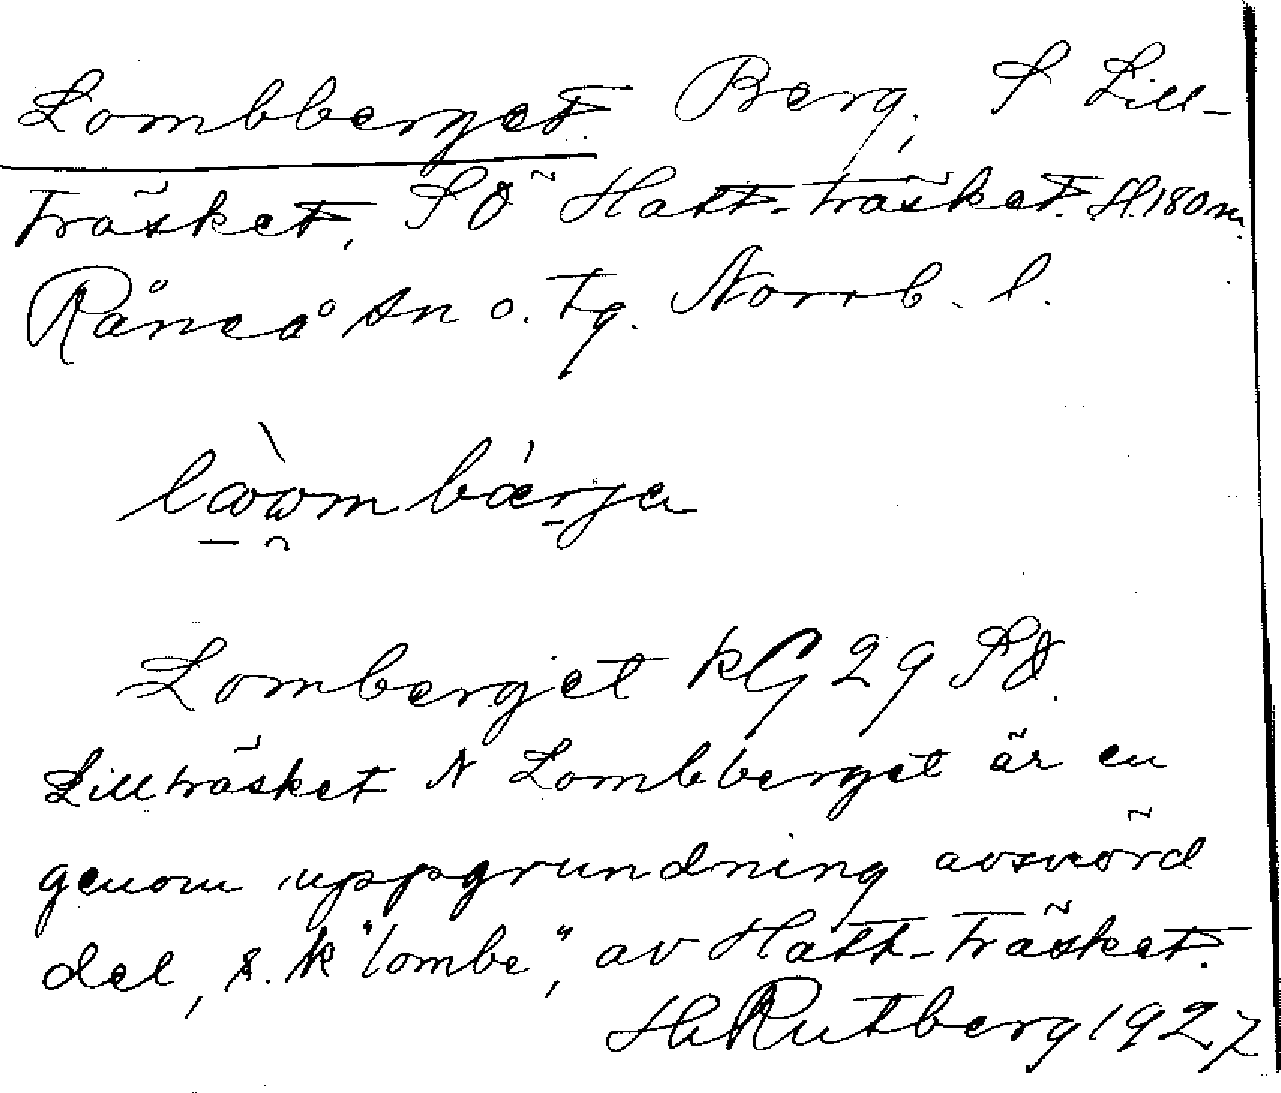 Lombberget. Berg, S Lill-
träsket, SÖ Hatt-träsket. H.180 m.
Råneå sn o. tg. Norrb. l.
Lomberget kG 29 SÖ.
Lillträsket N Lombberget är en
genom uppgrundning avsnörd
del, s. k "lombe", av Hatt-träsket.
H Rutberg 1927